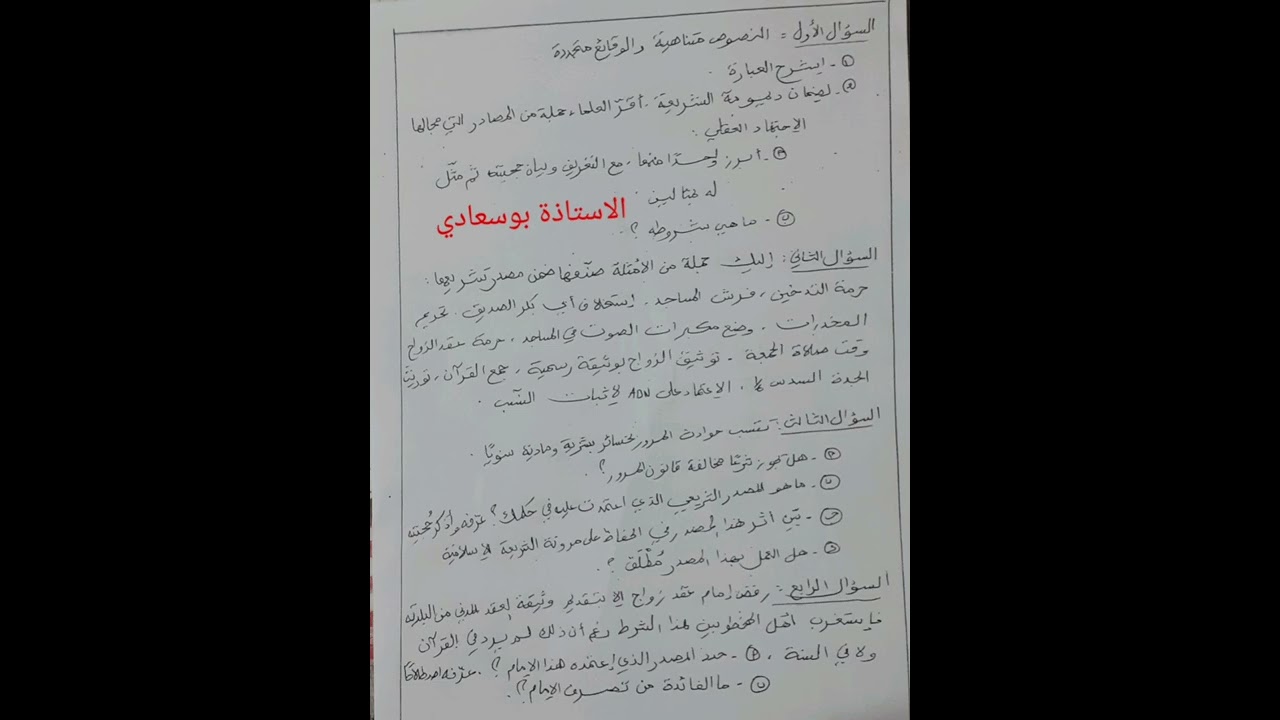 السؤال الأول = النصوص متناهية والوقائع متجددة
① - اشرح العبارة .
② - لضمان ديمومة الشريعة - أقرّ العلماء جملة من المصادر التي مجالها
الاجتهاد العقلي :
أ - أبرز واحدًا منها ، مع التعريف وبيان حجيته ثم مثّل
له بمثالين .
ب - ما هي شروطه ؟.
الاستاذة بوسعادي
السؤال الثاني : إليك جملة من الأمثلة صنّفها ضمن مصدر تشريعها :
حرمة التدخين ، فرش المساجد . استخلاف أبي بكر الصديق . تحريم
المخدرات . وضع مكبرات الصوت في المساجد ، حرمة عقد الزواج
وقت صلاة الجمعة - توثيق الزواج بوثيقة رسمية ، جمع القرآن ، توريث
الجدة السدس 1/6 . الاعتماد على ADN لإثبات النسب .
السؤال الثالث : تتسبب حوادث المرور خسائر بشرية ومادية سنويًا .
أ - هل تجوز شرعًا مخالفة قانون المرور ؟.
ب - ما هو المصدر التشريعي الذي اعتمدت عليه في حكمك ؟ عرّفه وأذكر حجيته
ج - بيّن أثر هذا المصدر في الحفاظ على مرونة الشريعة الإسلامية
د - هل العمل بهذا المصدر مُطْلَق ؟.
السؤال الرابع : رفض إمام عقد زواج إلا بتقديم وثيقة العقد المدني من البلدية
فاستغرب أهل المخطوبين لهذا الشرط رغم أن ذلك لم يرد في القرآن
ولا في السنة ، أ - حدد المصدر الذي إعتمده هذا الإمام ؟. عرّفه اصطلاحًا
ب - ما الفائدة من تصرف الإمام ؟.